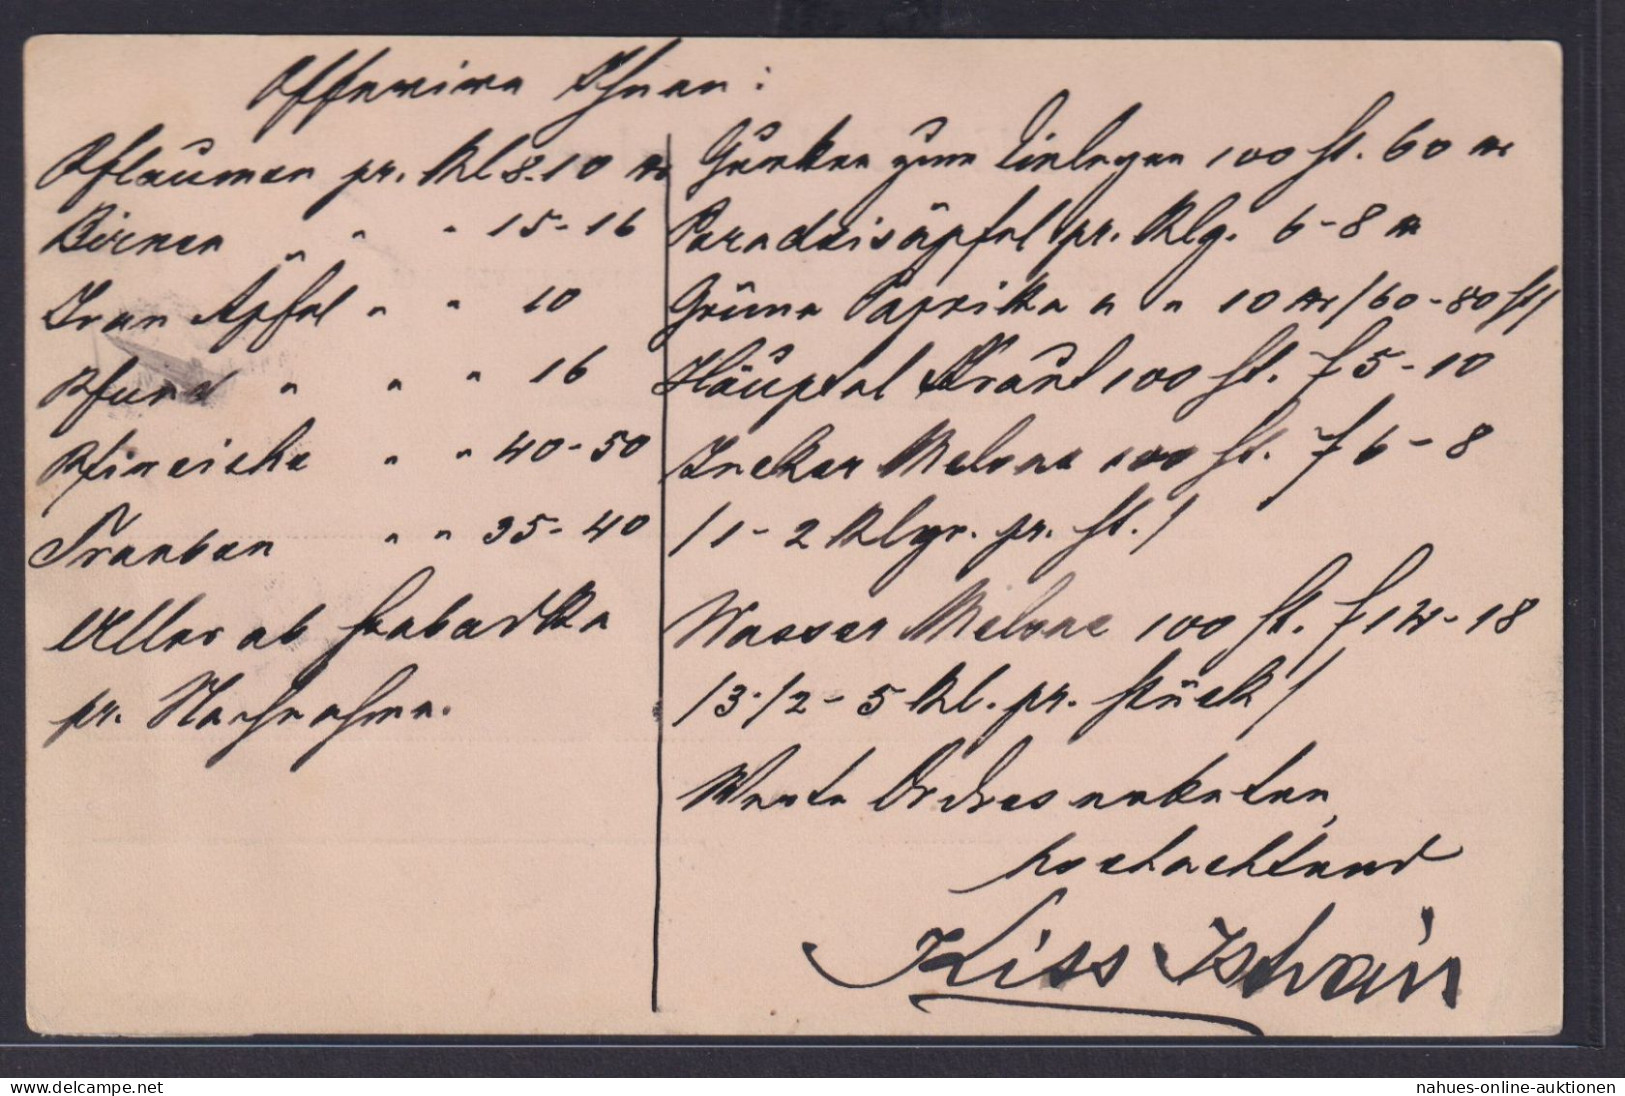 Offeriere Ihnen:
Pflaumen pr. Kl 8-10 xr
Birnen " " " 15-16
Äpfel " " 10
Pfund " " " 16
Pfirsiche " " 40-50
Trauben " " 35-40
Alles ab Szabadka
pr. Nachnahme.
Gurken zum Einlegen 100 St. 60 xr
Paradeisäpfel pr. Klg. 6-8 xr
Grüne Paprika " " 10 xr /60-80 St/
Häuptel Kraut 100 St. f 5-10
Zucker Melone 100 St. f 6-8
/1-2 Klgr. pr. St./
Wasser Melone 100 St. f 14-18
/3 1/2-5 Kl. pr. Stück/
Werte Ordres erbeten,
hochachtend
Kiss István
nahues-online-auktionen